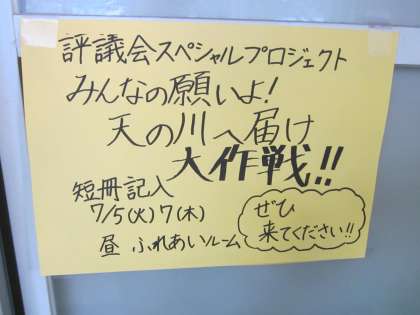 評議会スペシャルプロジェクト
みんなの願いよ!
天の川へ届け
大作戦!!
短冊記入
7/5(火)7(木)
昼 ふれあいルーム
ぜひ
来てください!!